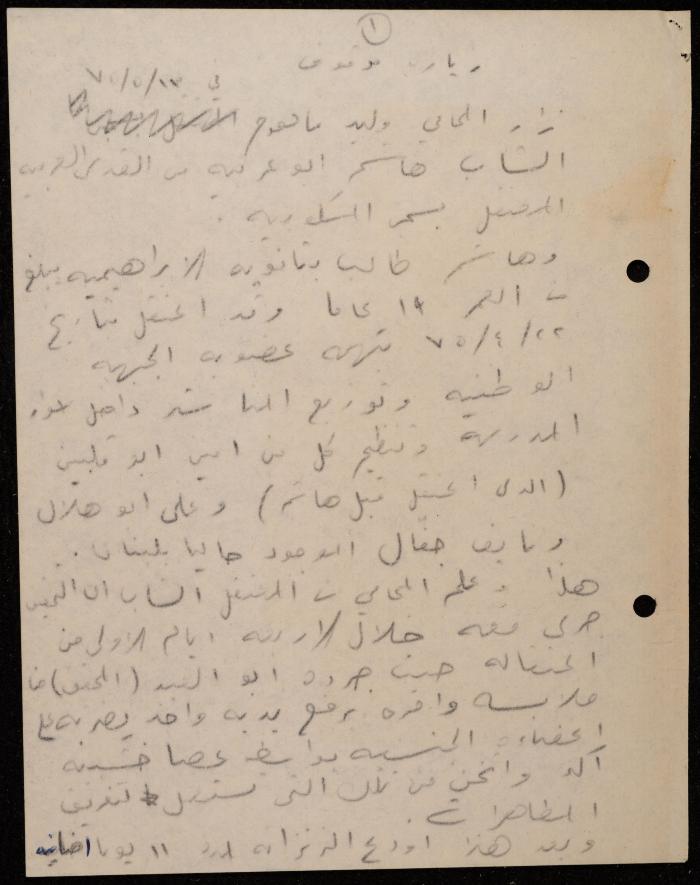 ١
زيارة موقوف
في ١٣/٥/٧٥
زار المحامي وليد
الشاب هاشم ابو غربيه من القدس العربيه
المعتقل بسجن المسكوبيه .
وهاشم طالب بثانويه الابراهيميه يبلغ
من العمر ١٩ عاما وقد اعتقل بتاريخ
٢٢/٤/٧٥ بتهمة عضوية الجبهه
الوطنيه وتوزيع المناشير داخل
المدرسة وتنظيم كل من امين ابو قلبين
(الذي اعتقل قبل هاشم) وعلي ابو هلال
ونايف جفال الموجود حاليا بلبنان .
هذا وعلم المحامي من المعتقل الشاب ان التحقيق
جرى معه خلال الاربعة ايام الاولى من
اعتقاله حيث جرده ابو العبد (المحقق) من
ملابسه وامره برفع يديه واخذ يضربه على
اعضاءه الجنسيه بواسطة عصا خشبيه
اكبر واثخن من تلك التي تستعمل لتفريق
المظاهرات .
وبعد هذا اودع الزنزانه لمدة ١١ يوما اضافيه